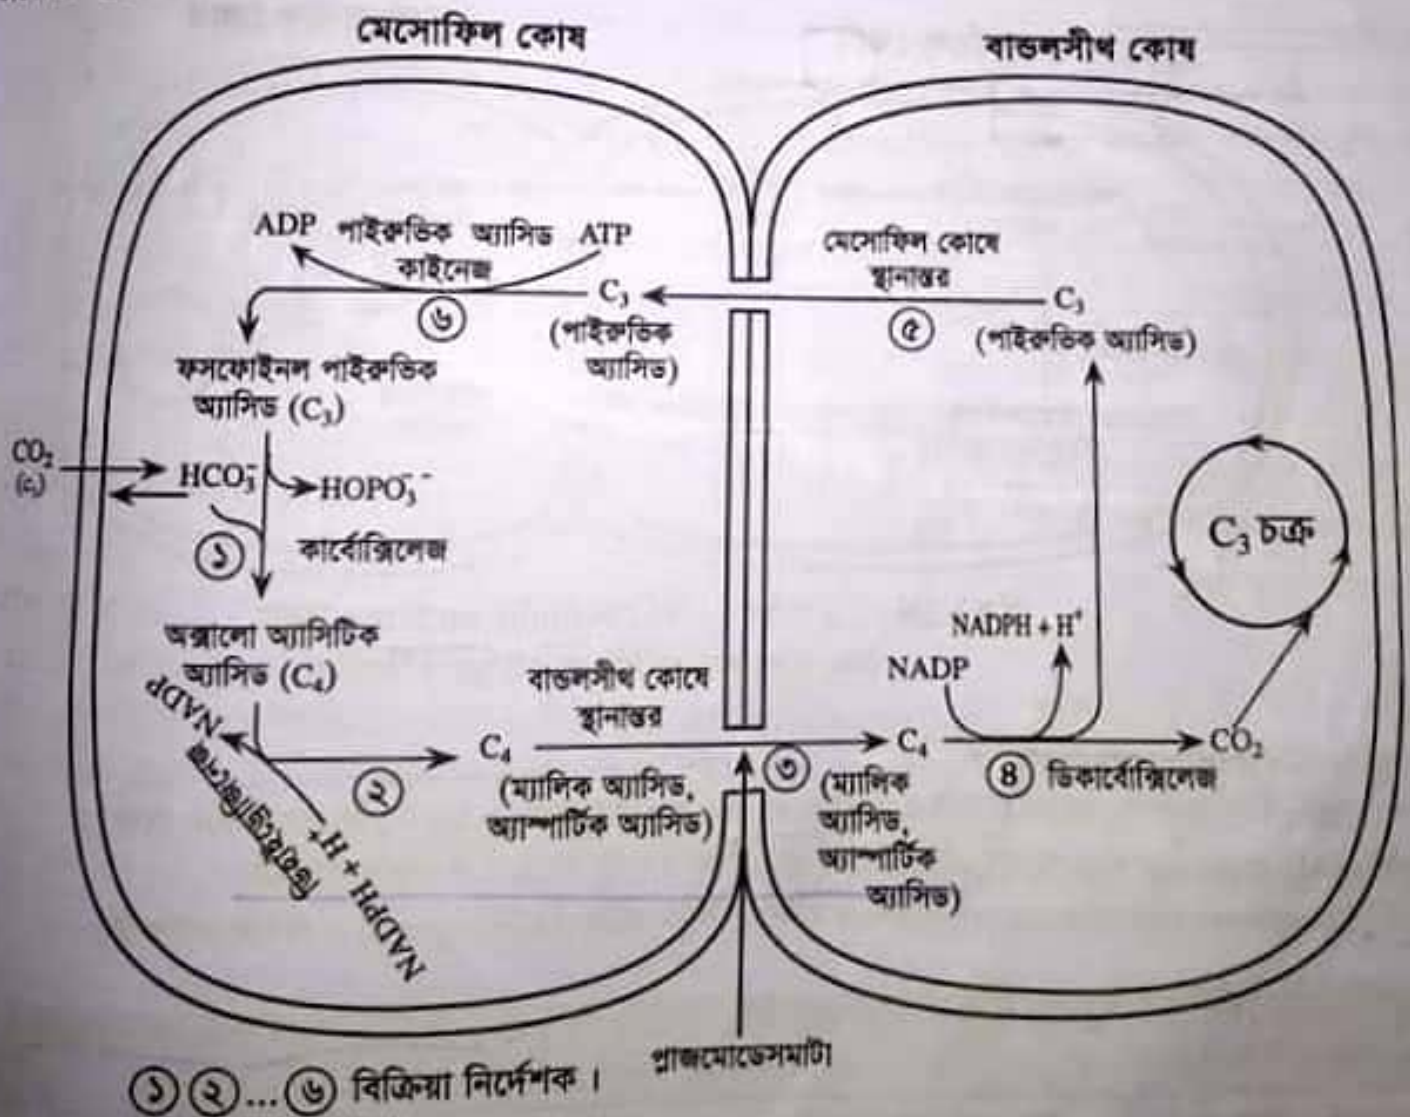 মেসোফিল কোষ
বান্ডলসীথ কোষ
ADP পাইরুভিক অ্যাসিড ATP
কাইনেজ
C₃
(পাইরুভিক
অ্যাসিড)
৬
মেসোফিল কোষে
স্থানান্তর
৫
C₃
(পাইরুভিক অ্যাসিড)
ফসফোইনল পাইরুভিক
অ্যাসিড (C₃)
CO₂
HCO₃⁻
HOPO₃⁻⁻
১
কার্বোক্সিলেজ
C₃ চক্র
অক্সালো অ্যাসিটিক
অ্যাসিড (C₄)
NADP
ডিহাইড্রোজিনেজ
NADPH + H⁺
২
C₄
(ম্যালিক অ্যাসিড,
অ্যাস্পার্টিক অ্যাসিড)
বান্ডলসীথ কোষে
স্থানান্তর
৩
C₄
(ম্যালিক
অ্যাসিড,
অ্যাস্পার্টিক
অ্যাসিড)
NADPH + H⁺
NADP
৪ ডিকার্বোক্সিলেজ
CO₂
প্লাজমোডেসমাটা
১ ২...৬ বিক্রিয়া নির্দেশক।